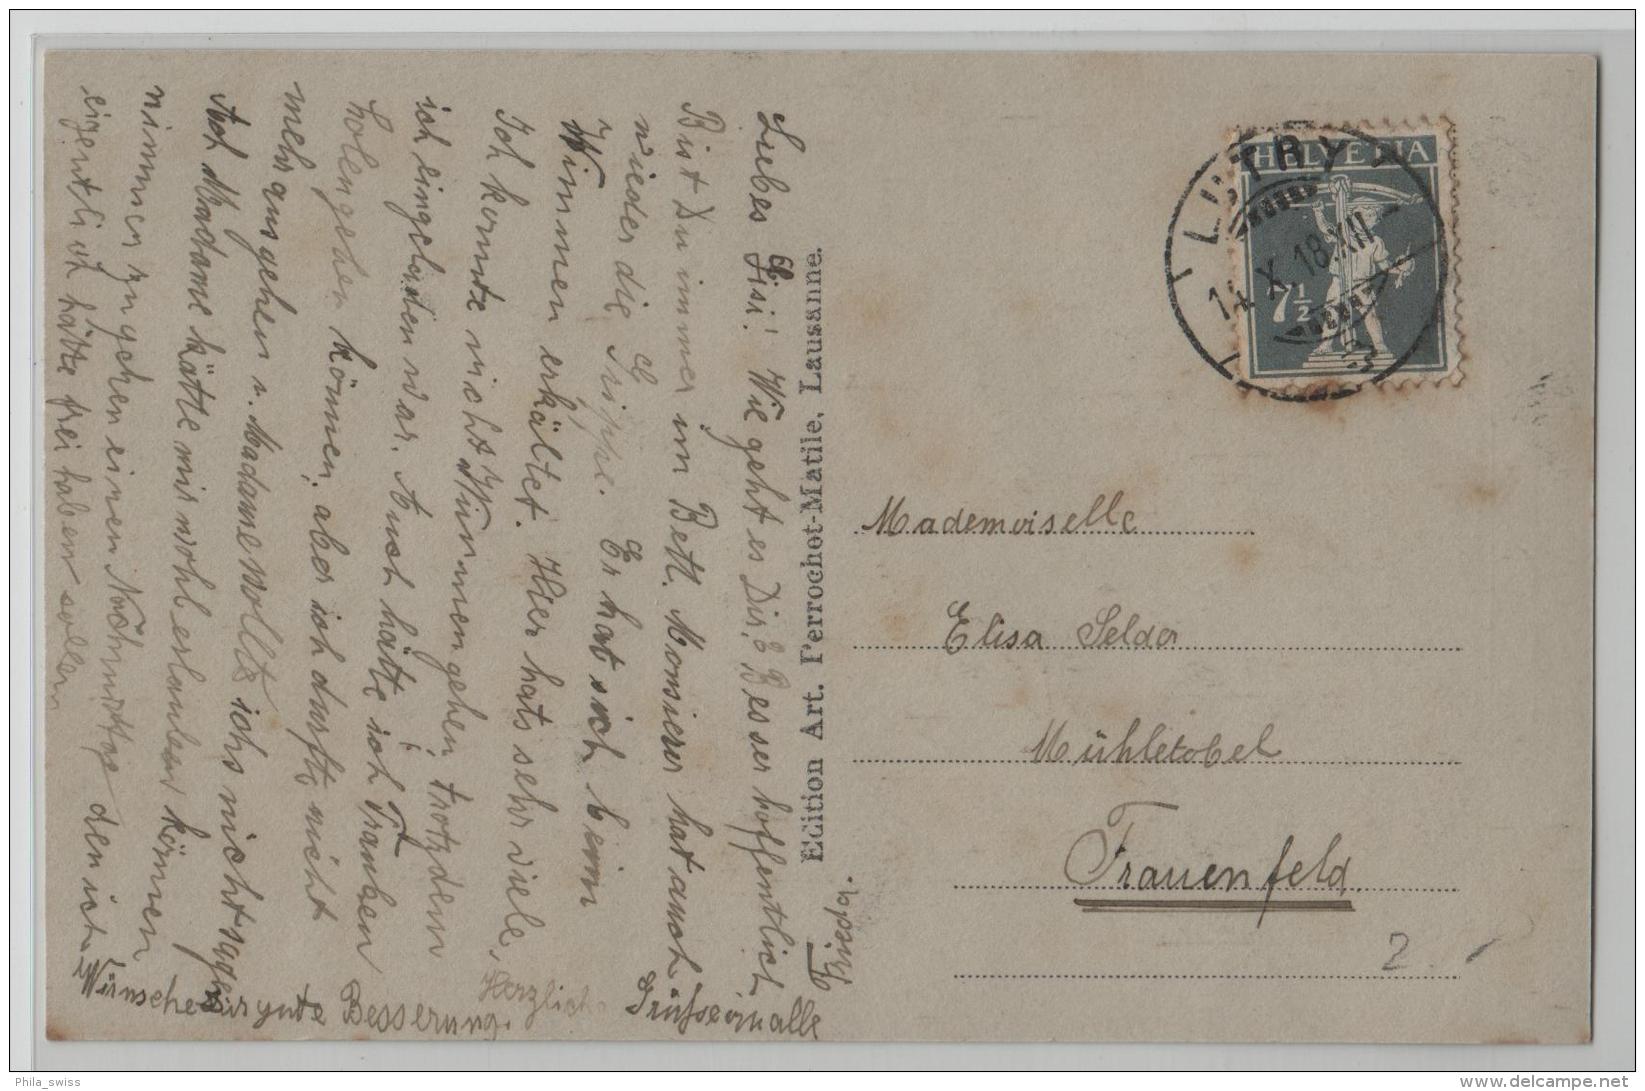 Liebes Lisi! Wie geht es Dir? Besser hoffentlich
Bist Du immer im Bett. Monsieur hat auch
wieder die Grippe. Er hat sich beim
Wimmen erkältet. Hier hats sehr viele,
Ich konnte nicht Wimmen gehen, trotzdem
ich eingeladen war. Auch hätte ich Trauben
holen gehen können, aber ich durfte nicht
mehr ausgehen u. Madame wollte ichs nicht sagen
Ach Madame hätte mir wohl erlauben können
nimmen zu gehen einen Nachmittag den ich
eigentlich hätte frei haben sollen
Wünsche Dir gute Besserung.
Herzlich
Grüsse an alle
Edition Art. Perrochet-Matile, Lausanne.
HELVETIA
7½
LUTRY
14.X.18.XII
Mademoiselle
Elisa Selder
Mühletobel
Frauenfeld
2
Phila_swiss
delcampe.net